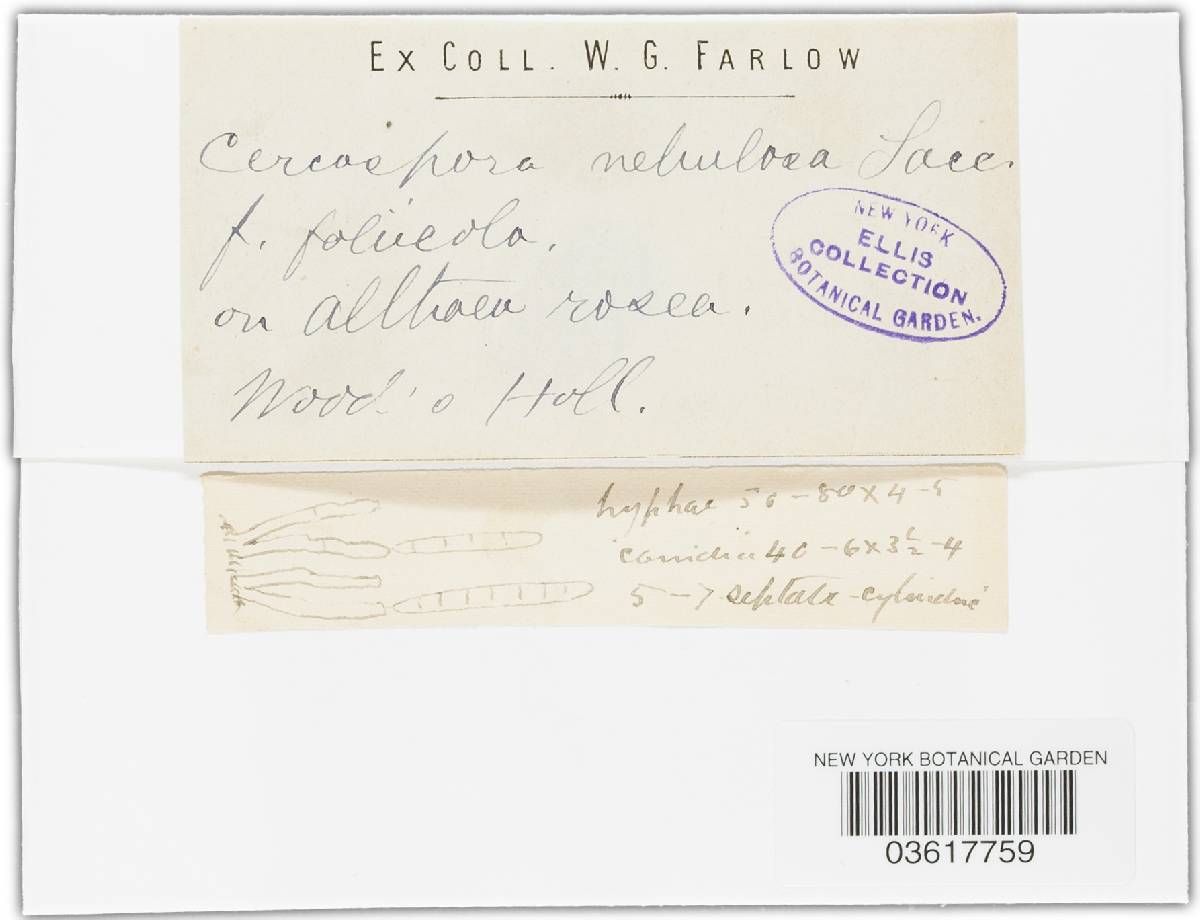 EX COLL. W. G. FARLOW
Cercospora nebulosa Sacc.
f. foliicola.
on Althaea rosea.
Wood's Holl.
NEW YORK
ELLIS
COLLECTION
BOTANICAL GARDEN.
hyphae 50-80 x 4-5
conidia 40-6 x 3½-4
5-7 septate-cylindric
NEW YORK BOTANICAL GARDEN
03617759